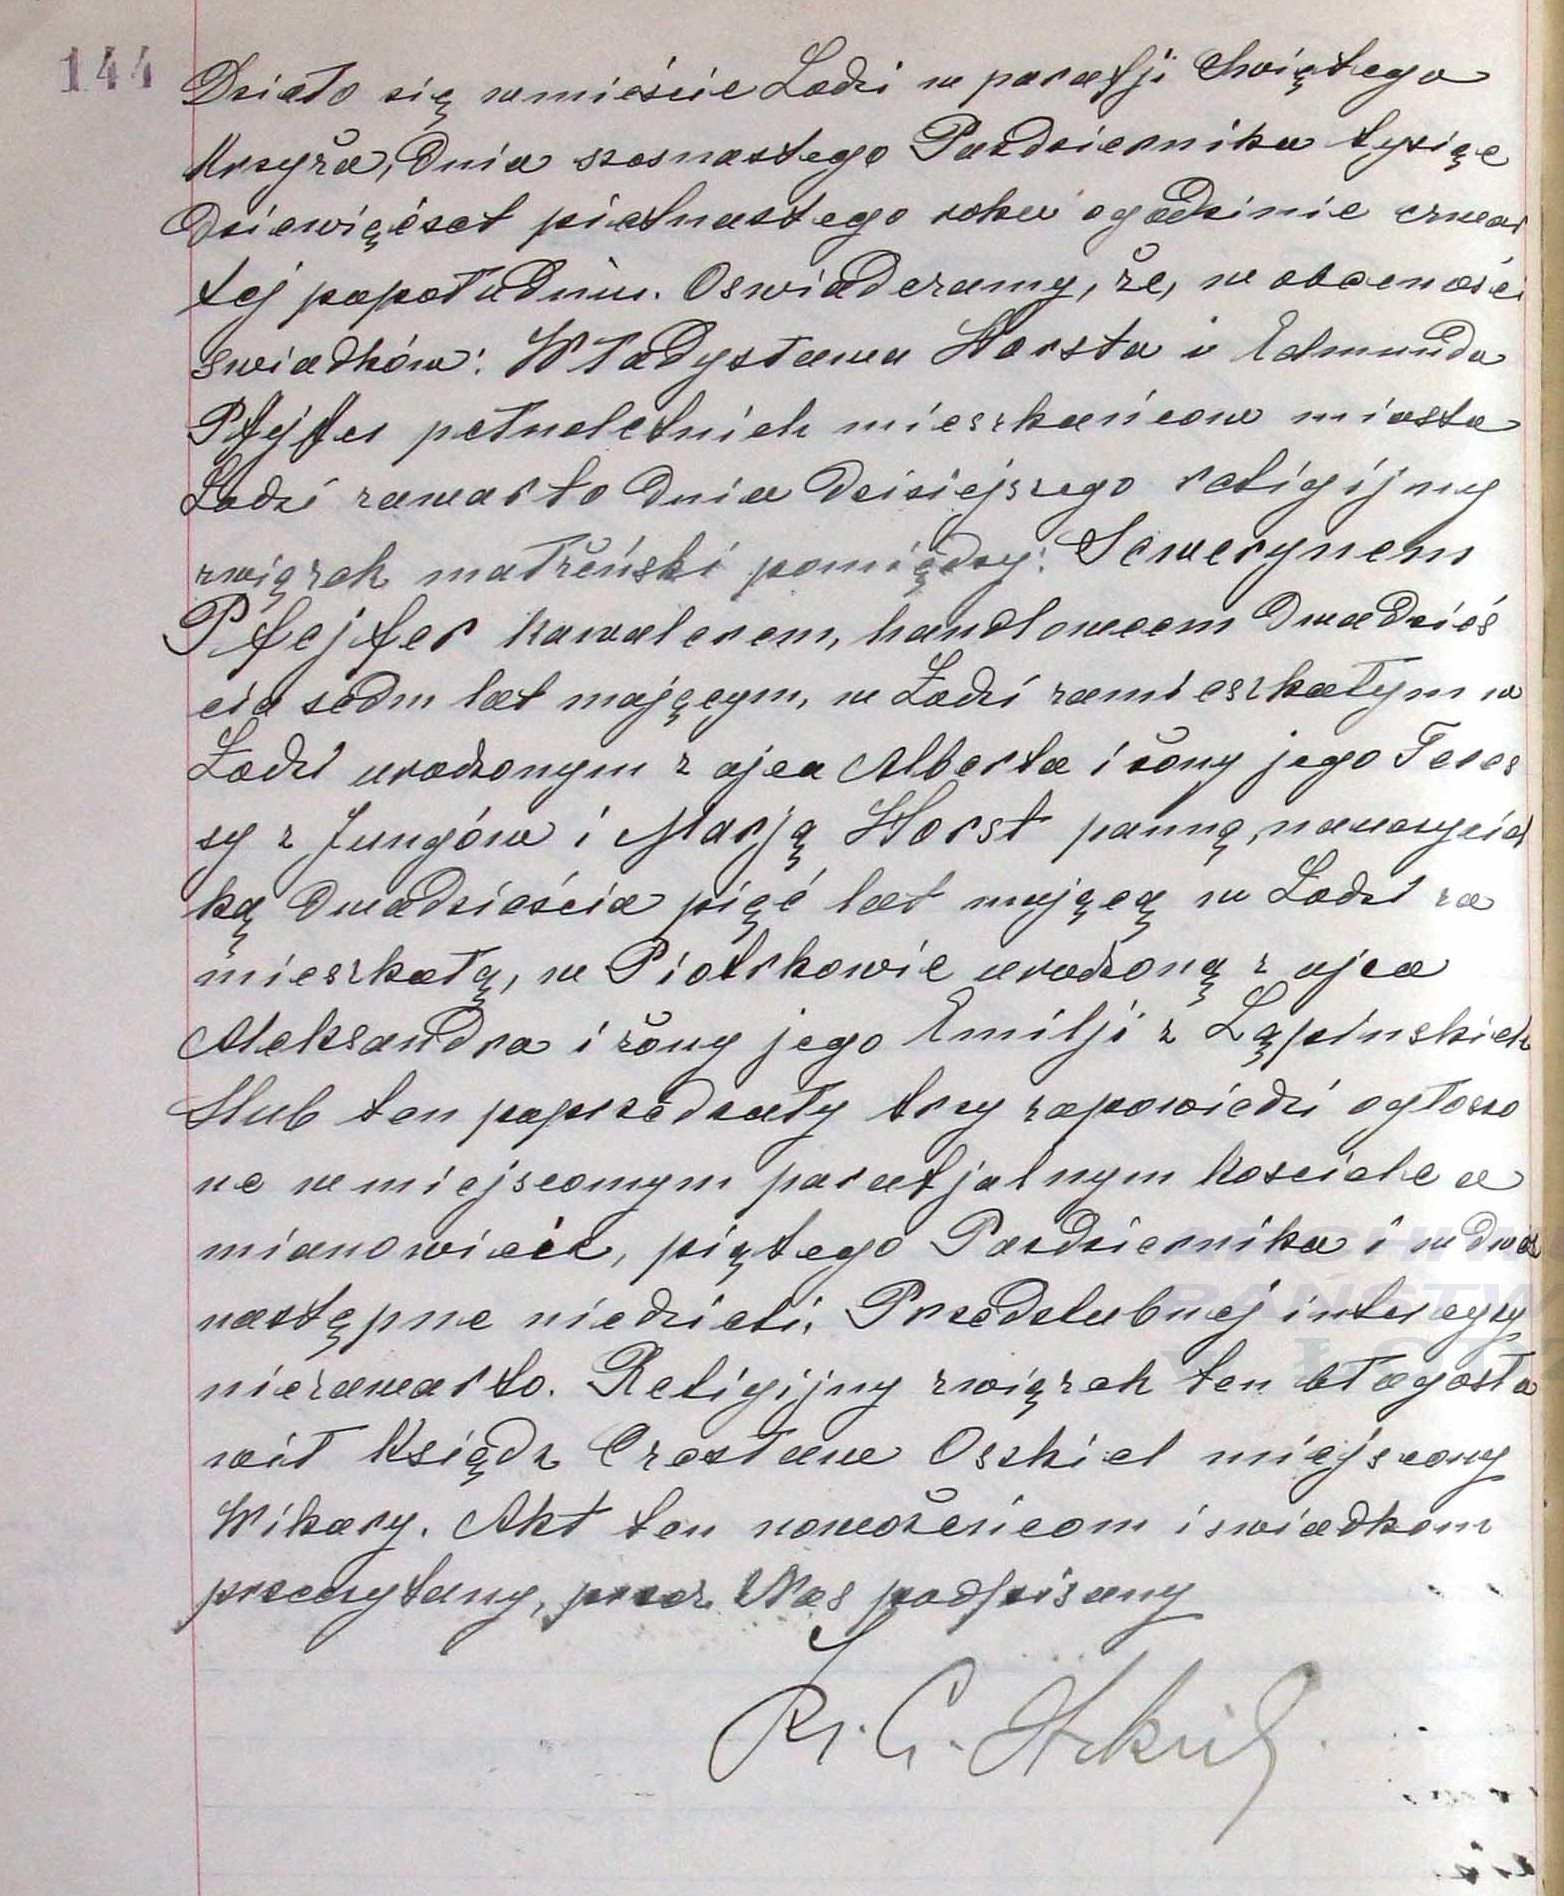 144
Działo się w mieście Łodzi w parafji Świętego
Krzyża, dnia szesnastego Pazdziernika tysiąc
dziewięćset piętnastego roku o godzinie czwar
tej popołudniu. Oswiadczamy, że, w obecności
swiadków: Władysława Horsta i Edmunda
Pfejfer pełnoletnich mieszkańcow miasta
Łodzi zawarto dnia dzisiejszego religijny
związek małżeński pomiędzy: Sewerynem
Pfejfer kawalerem, handlowcem dwadzieś
cia sedm lat mającym, w Łodzi zamieszkałym w
Łodzi urodzonym z ojca Alberta i żony jego Teres
sy z Jungów i Marją Horst panną, nauczyciel
ką dwadzieścia pięć lat mającą w Łodzi za
mieszkałą, w Piotrkowie urodzoną z ojca
Aleksandra i żony jego Emilji z Łąpinskich
Slub ten poprzedzały trzy zapowiedzi ogłoszo
ne w miejscowym parafjalnym kosciele a
mianowicie, piątego Pazdziernika i w dwie
następne niedzieli. Przedslubnej intercyzy
niezawarto. Religijny związek ten błogosła
wił Ksiądz Czesław Oszkiel miejscowy
Wikary. Akt ten nowożeńcom i swiadkom
przeczytany, przez Nas podpisany
Ks. C.
ARCHIWUM
PAŃSTWOWE
W ŁODZI